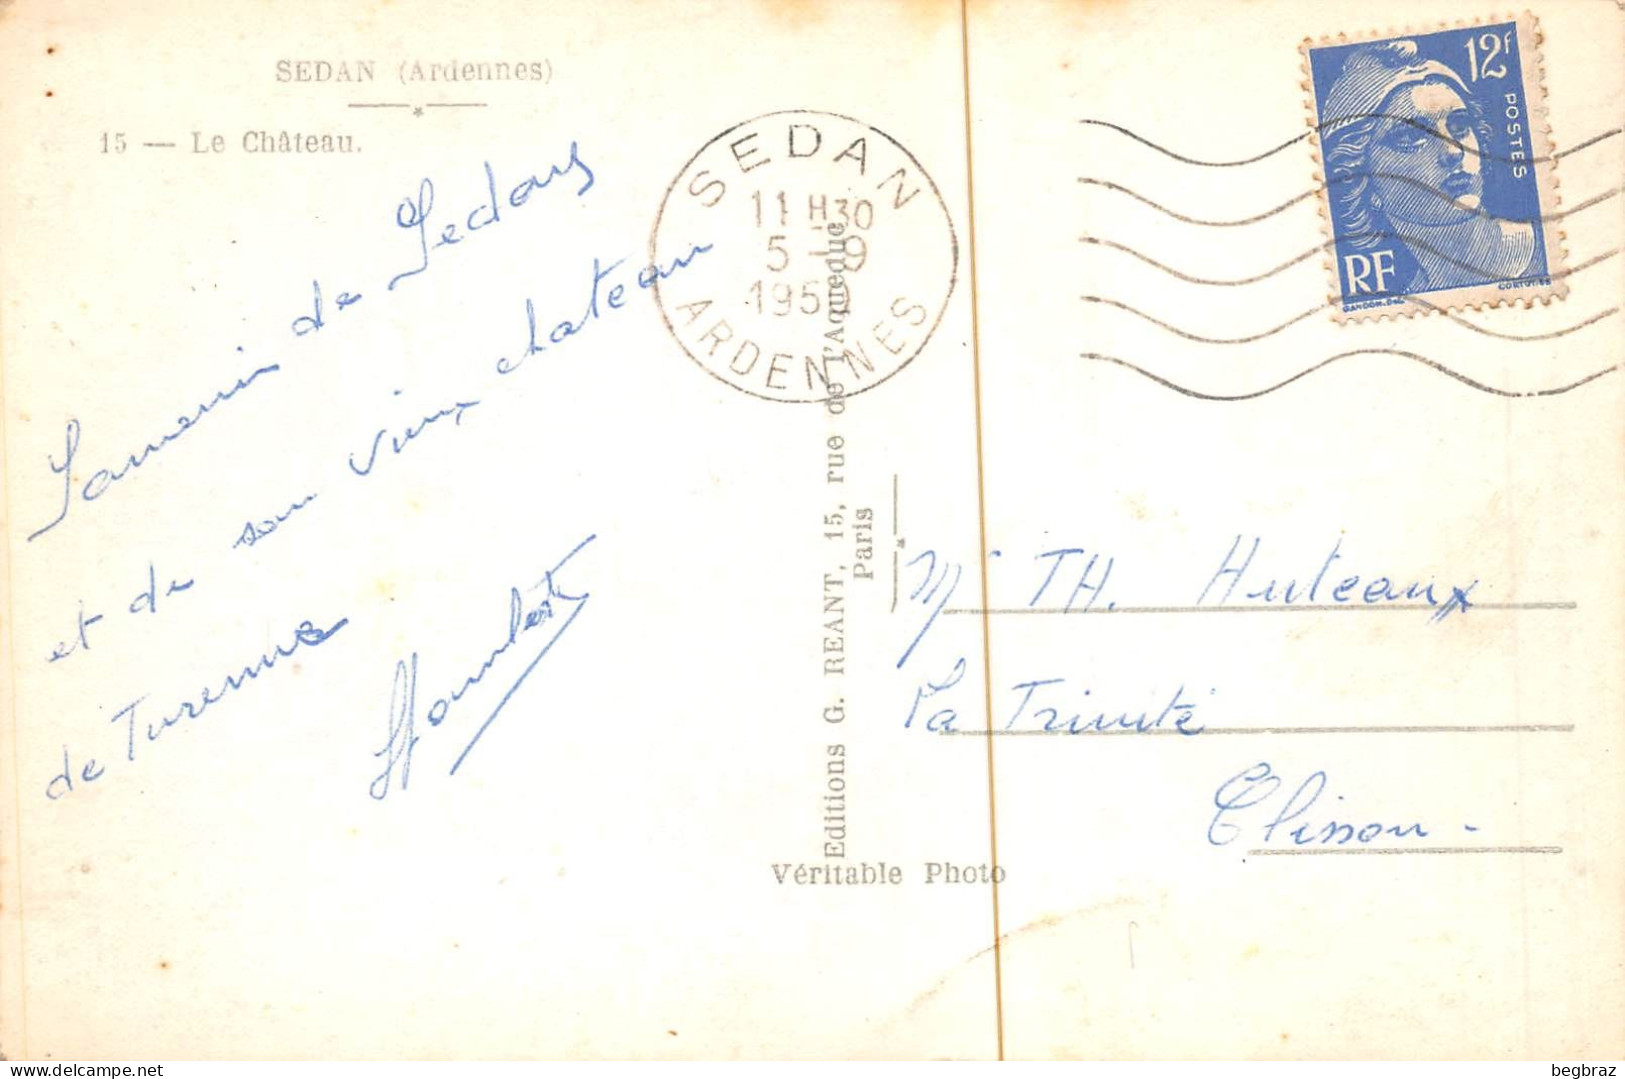 SEDAN (Ardennes)
15 — Le Château.
de Sedan
et de son vieux chateau
de Turenne
SEDAN
11 H30
5 - 9
195
ARDENNES
12f
POSTES
RF
GANDON. DEL
CORTOT. SC
Editions G. REANT, 15, rue de l'Aqueduc
Paris
Véritable Photo
Mr TH. Huteaux
La Trinité
Clisson -
begbraz